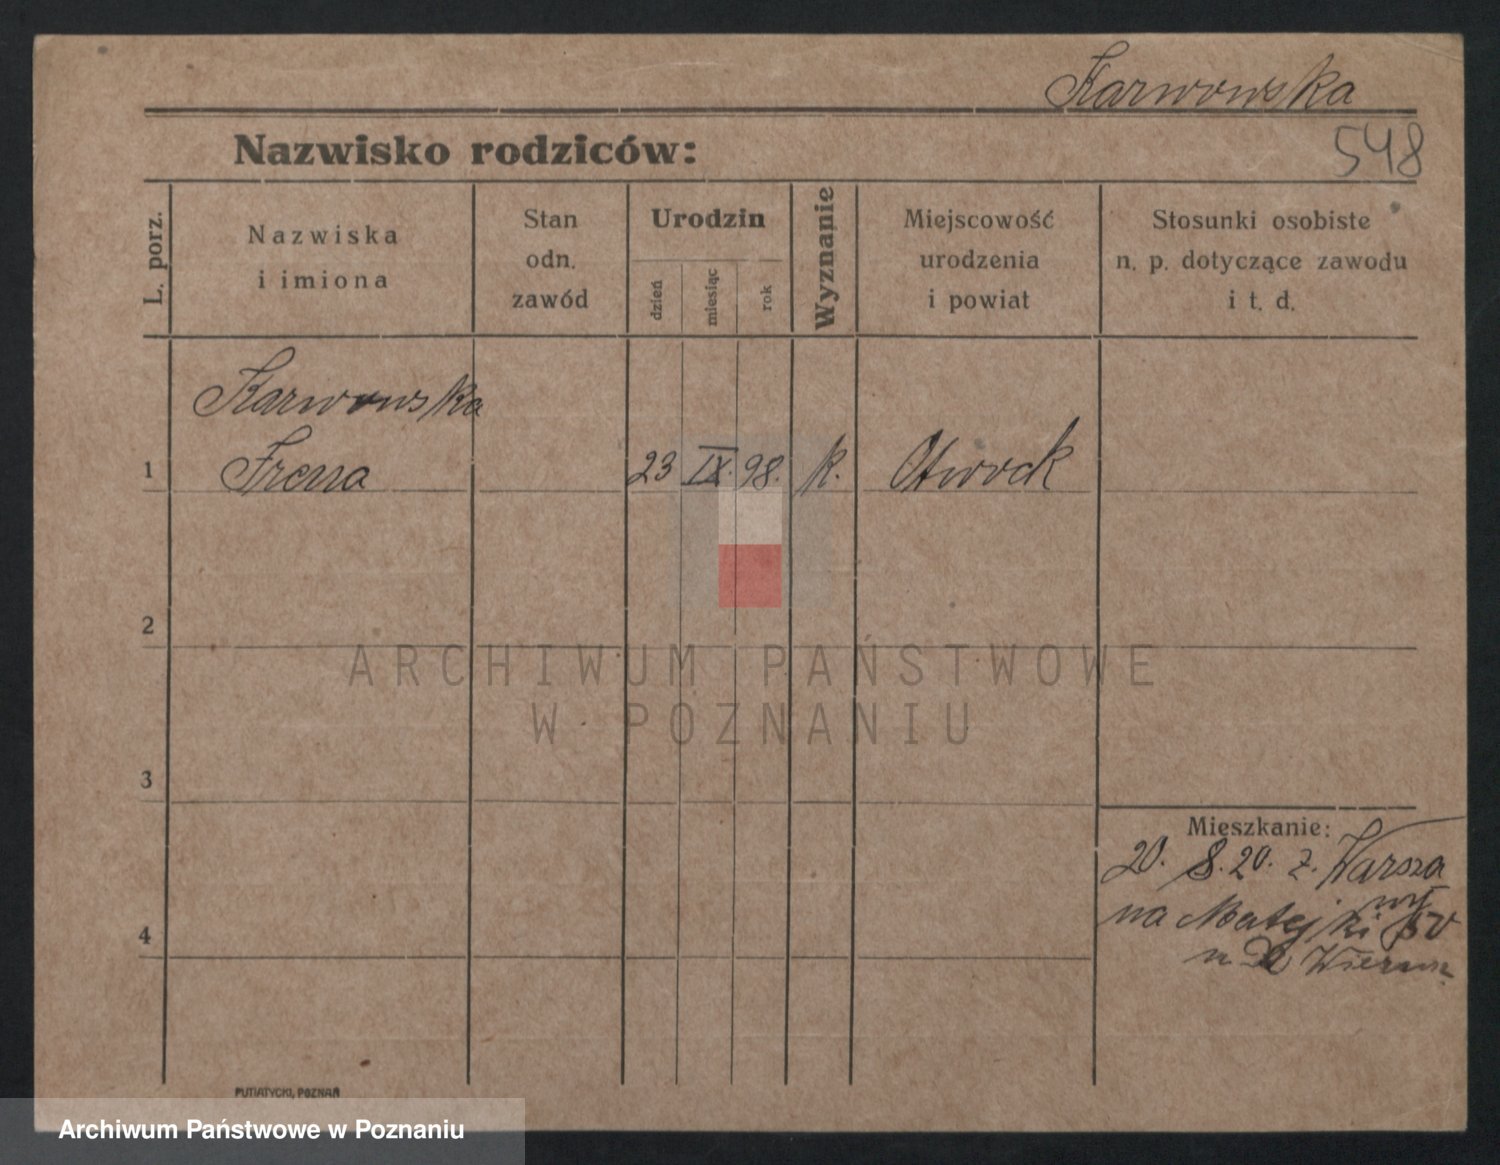 Karwowska
548
Nazwisko rodziców:
L. porz.
Nazwiska
i imiona
Stan
odn.
zawód
Urodzin
dzień
miesiąc
rok
Wyznanie
Miejscowość
urodzenia
i powiat
Stosunki osobiste
n. p. dotyczące zawodu
i t. d.
Karwowska
1 Irena 23 IX. 98. k. Otwock
2
3
4
Mieszkanie:
20. 8. 20. z. Warsza
wy
na Matejki
u
ARCHIWUM PAŃSTWOWE
W POZNANIU
PUTIATYCKI, POZNAŃ
Archiwum Państwowe w Poznaniu